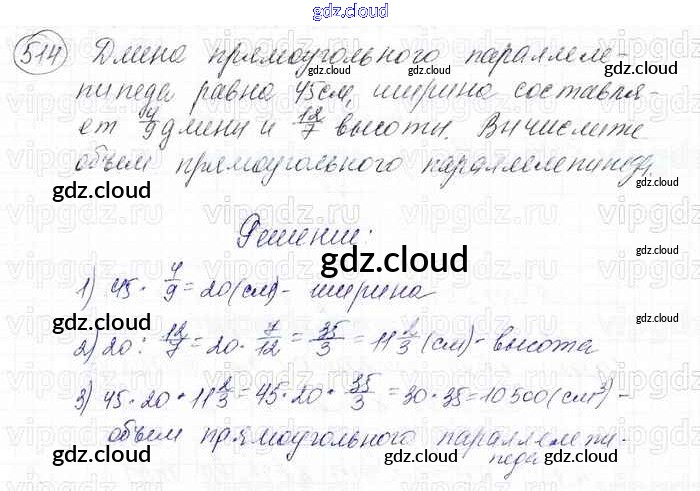 gdz.cloud
514 Длина прямоугольного параллеле-
пипеда равна 45 см, ширина составля-
ет 4/9 длины и 12/7 высоты. Вычислите
объем прямоугольного параллелепипеда.
gdz.cloud
Решение:
gdz.cloud
1) 45 · 4/9 = 20 (см) - ширина
2) 20 : 12/7 = 20 · 7/12 = 35/3 = 11 2/3 (см) - высота
3) 45 · 20 · 11 2/3 = 45 · 20 · 35/3 = 30 · 35 = 10500 (см³) -
объем прямоугольного параллелепи-
педа
gdz.cloud